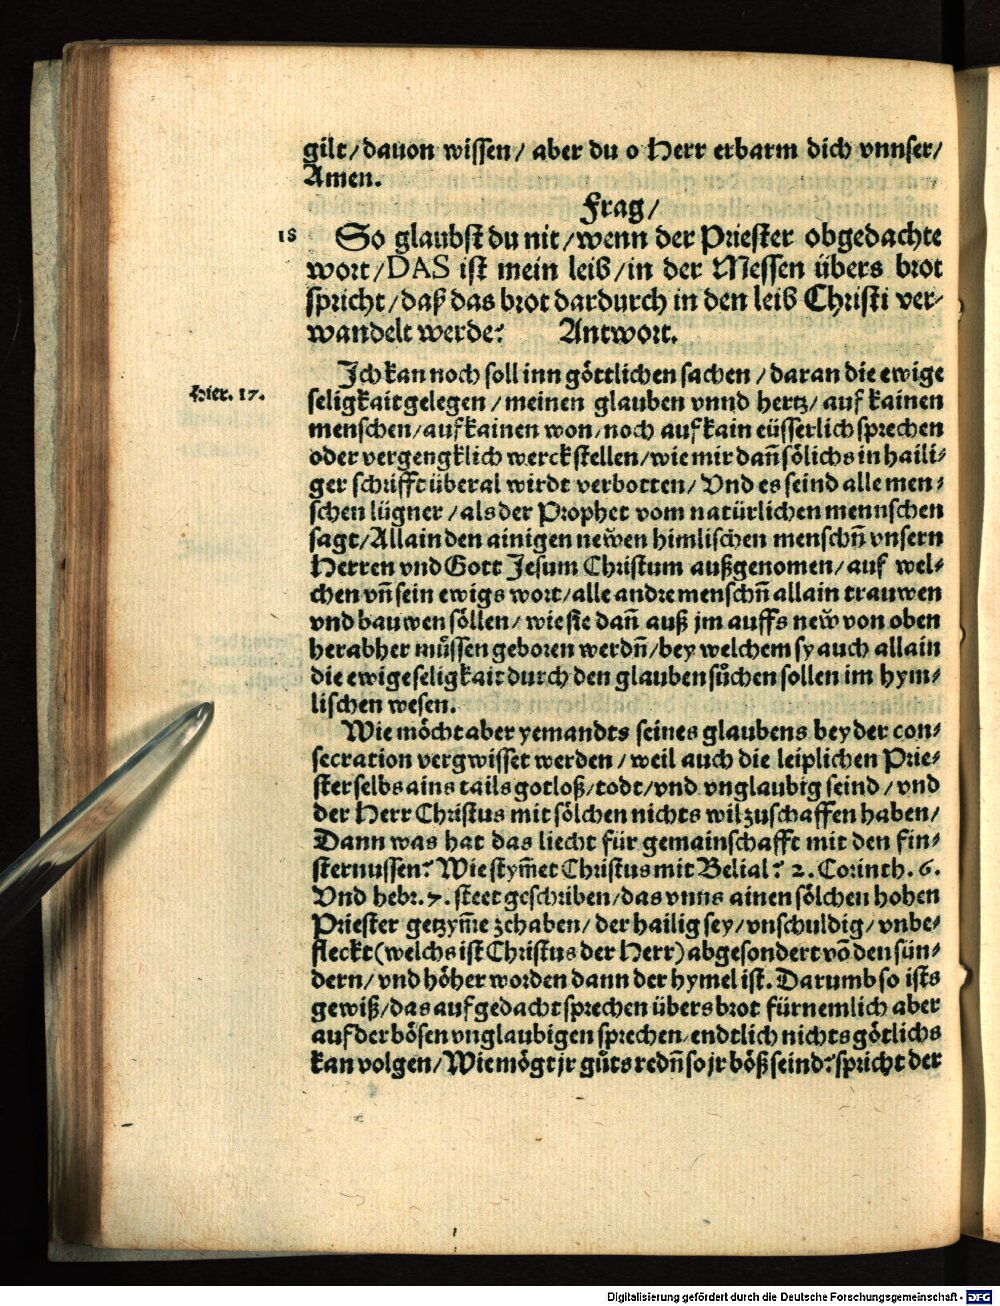 gilt/dauon wissen/ aber du o Herr erbarm dich vnnser/
Amen.
Frag/
18 So glaubst du nit/wenn der Priester obgedachte
wort/DAS ist mein leib/in der Messen übers brot
spricht/daß das brot dardurch in den leib Christi ver-
wandelt werde? Antwort.
Ich kan noch soll inn göttlichen sachen/daran die ewige
Hier. 17. seligkait gelegen/meinen glauben vnnd hertz/auf kainen
menschen/auf kainen won/noch auf kain eüsserlich sprechen
oder vergengklich werck stellen/wie mir dañ sölichs in haili-
ger schrifft überal wirdt verbotten/Vnd es seind alle men-
schen lügner/als der Prophet vom natürlichen mennschen
sagt/Allain den ainigen newen himlischen menschñ vnsern
Herren vnd Gott Jesum Christum außgenomen/auf wel-
chen vñ sein ewigs wort/alle andre menschñ allain trauwen
vnd bauwen söllen/wie sie dañ auß jm auffs new von oben
herabher müssen geboren werdñ/bey welchem sy auch allain
die ewige seligkait durch den glauben sůchen sollen im hym-
lischen wesen.
Wie möcht aber yemandts seines glaubens bey der con-
secration vergwisset werden/weil auch die leiplichen Prie-
ster selbs ains tails gotloß/todt/vnd vnglaubig seind/vnd
der Herr Christus mit sölchen nichts wil zuschaffen haben/
Dann was hat das liecht für gemainschafft mit den fin-
sternussen? Wie stym̃et Christus mit Belial? 2. Corinth. 6.
Vnd hebr. 7. steet geschriben/das vnns ainen sölchen hohen
Priester getzym̃e zehaben/der hailig sey/vnschuldig/vnbe-
fleckt(welchs ist Christus der Herr)abgesondert võ den sün-
dern/vnd höher worden dann der hymel ist. Darumb so ists
gewiß/das auf gedacht sprechen übers brot fürnemlich aber
auf der bösen vnglaubigen sprechen/endtlich nichts götlichs
kan volgen/Wie mögt jr gůts redñ so jr böß seind? spricht der
Digitalisierung gefördert durch die Deutsche Forschungsgemeinschaft - DFG